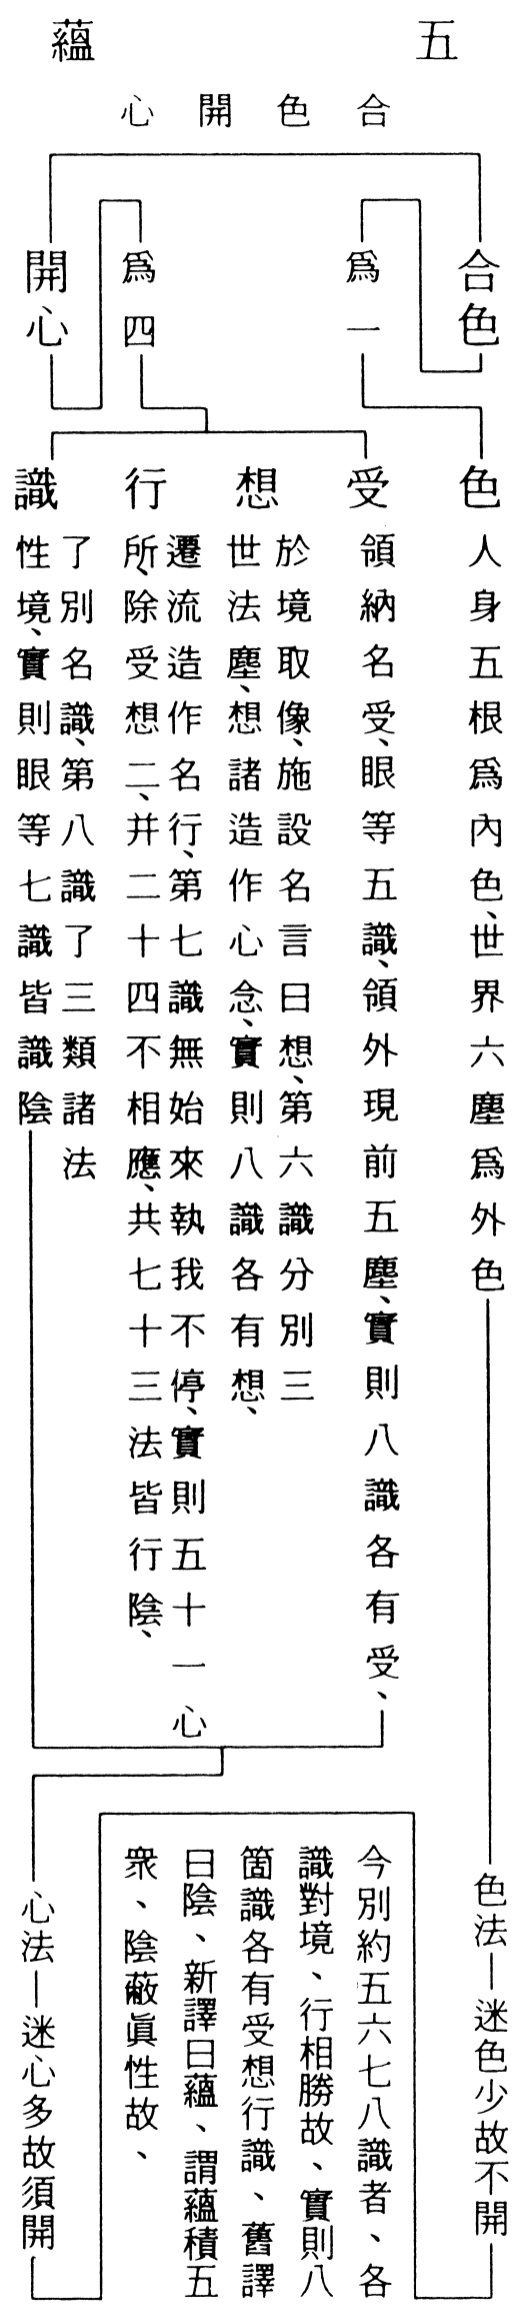 五蘊
合色開心
合色
為一
為四
開心
色
人身五根為內色、世界六塵為外色
受
領納名受、眼等五識、領外現前五塵、實則八識各有受、
想
於境取像、施設名言曰想、第六識分別三
世法塵、想諸造作心念、實則八識各有想、
行
遷流造作名行、第七識無始來執我不停、實則五十一心
所、除受想二、并二十四不相應、共七十三法皆行陰、
識
了別名識、第八識了三類諸法
性境、實則眼等七識皆識陰
色法—迷色少故不開
今別約五六七八識者、各
識對境、行相勝故、實則八
箇識各有受想行識、舊譯
曰陰、新譯曰蘊、謂蘊積五
眾、陰蔽眞性故、
心法—迷心多故須開